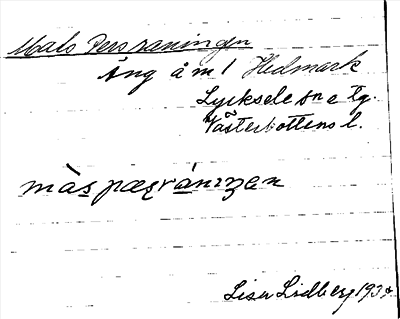 Mals Persraningen
Äng å ml Hedmark
Lycksele sn e tg.
Västerbottens l.
màspæʂránıŋen
Lisa Lidberg 1934